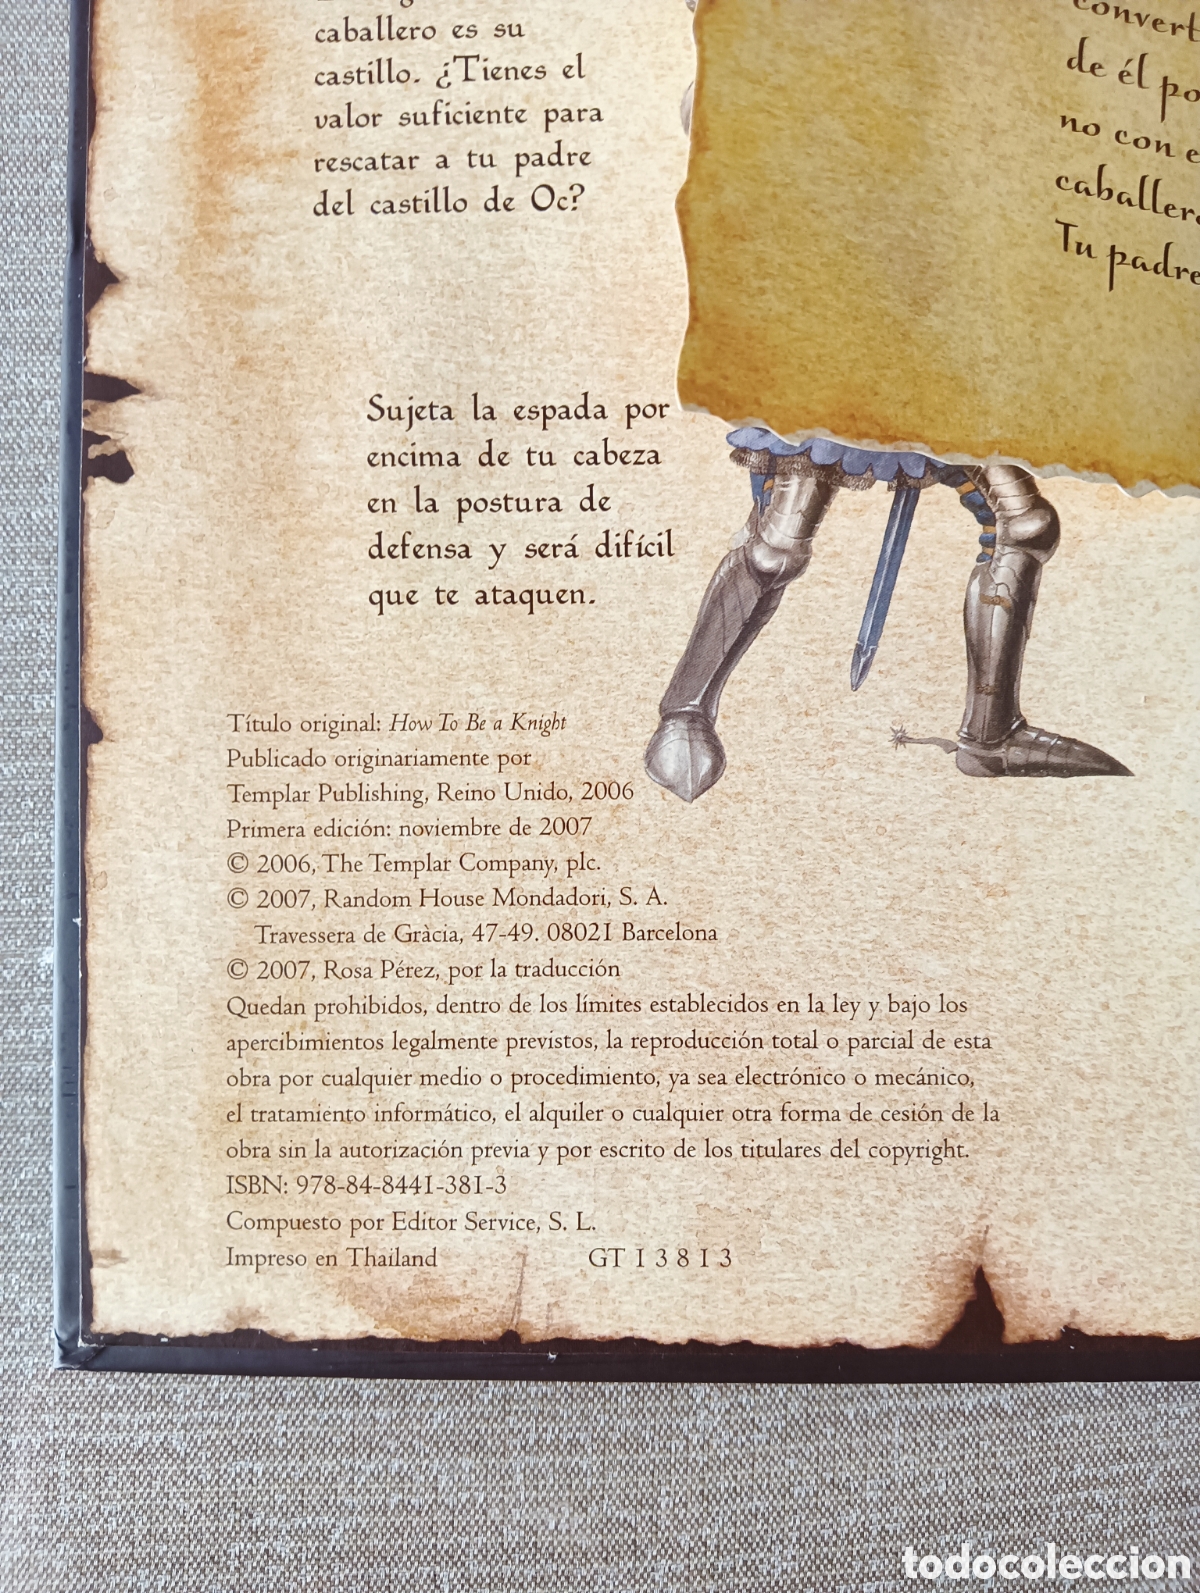 caballero es su
castillo. ¿Tienes el
valor suficiente para
rescatar a tu padre
del castillo de Oc?
de él
no con
Tu padre
Sujeta la espada por
encima de tu cabeza
en la postura de
defensa y será difícil
que te ataquen.
Título original: How To Be a Knight
Publicado originariamente por
Templar Publishing, Reino Unido, 2006
Primera edición: noviembre de 2007
© 2006, The Templar Company, plc.
© 2007, Random House Mondadori, S. A.
Travessera de Gràcia, 47-49. 08021 Barcelona
© 2007, Rosa Pérez, por la traducción
Quedan prohibidos, dentro de los límites establecidos en la ley y bajo los
apercibimientos legalmente previstos, la reproducción total o parcial de esta
obra por cualquier medio o procedimiento, ya sea electrónico o mecánico,
el tratamiento informático, el alquiler o cualquier otra forma de cesión de la
obra sin la autorización previa y por escrito de los titulares del copyright.
ISBN: 978-84-8441-381-3
Compuesto por Editor Service, S. L.
Impreso en Thailand GT 1 3 8 1 3
todocoleccion